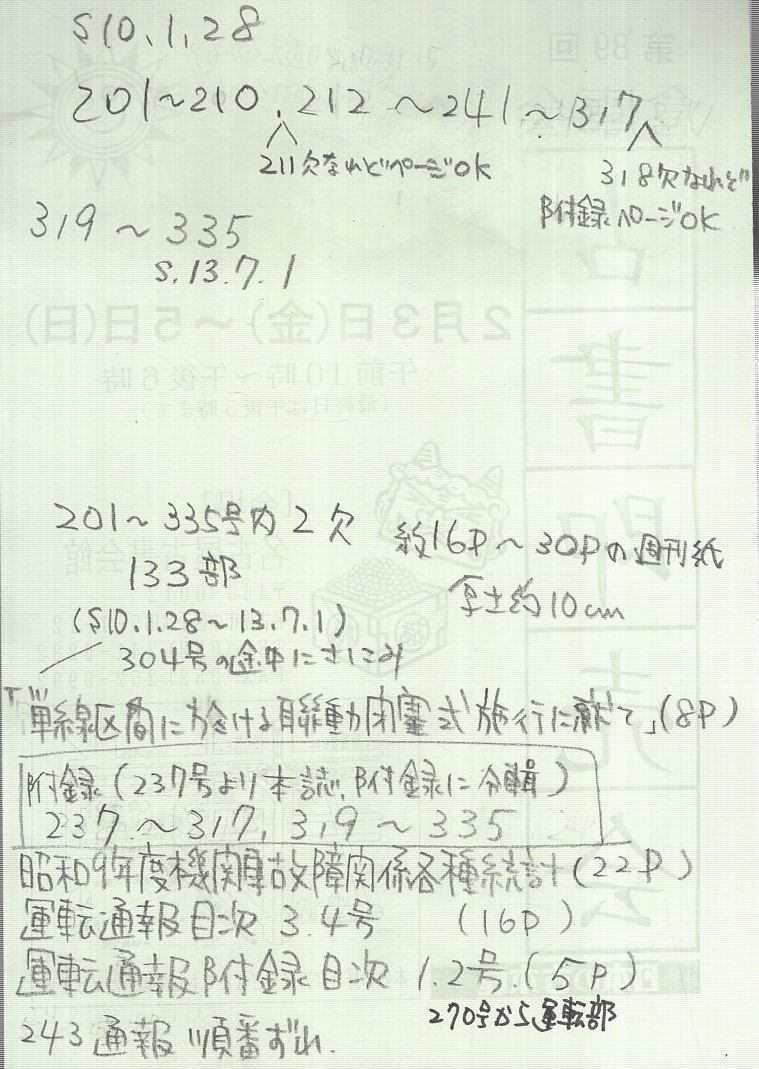 S10.1.28
201~210、212~241~317
211欠なれどページOK
318欠なれど
附録ページOK
319~335
S.13.7.1
201~335号内2欠
133部
(S10.1.28~13.7.1)
約16P~30Pの週刊紙
厚さ約10cm
304号の途中にさしこみ
「単線区間に於ける聯動閉塞式施行に就て」(8P)
附録(237号より本誌、附録に分輯)
237~317, 319~335
昭和9年度機関車故障関係各種統計(22P)
運転通報目次 3.4号 (16P)
運転通報附録目次 1.2号.(5P)
270号から運転部
243通報順番ずれ.
第89回
2月3日(金)~5日(日)
午前10時~午後6時
(最終日は午後5時まで)
古書即売会